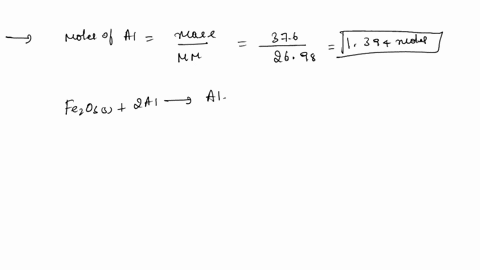 → Moles of Al = mass / MM = 37.6 / 26.98 = 1.394 moles
Fe2O3(s) + 2Al → Al.